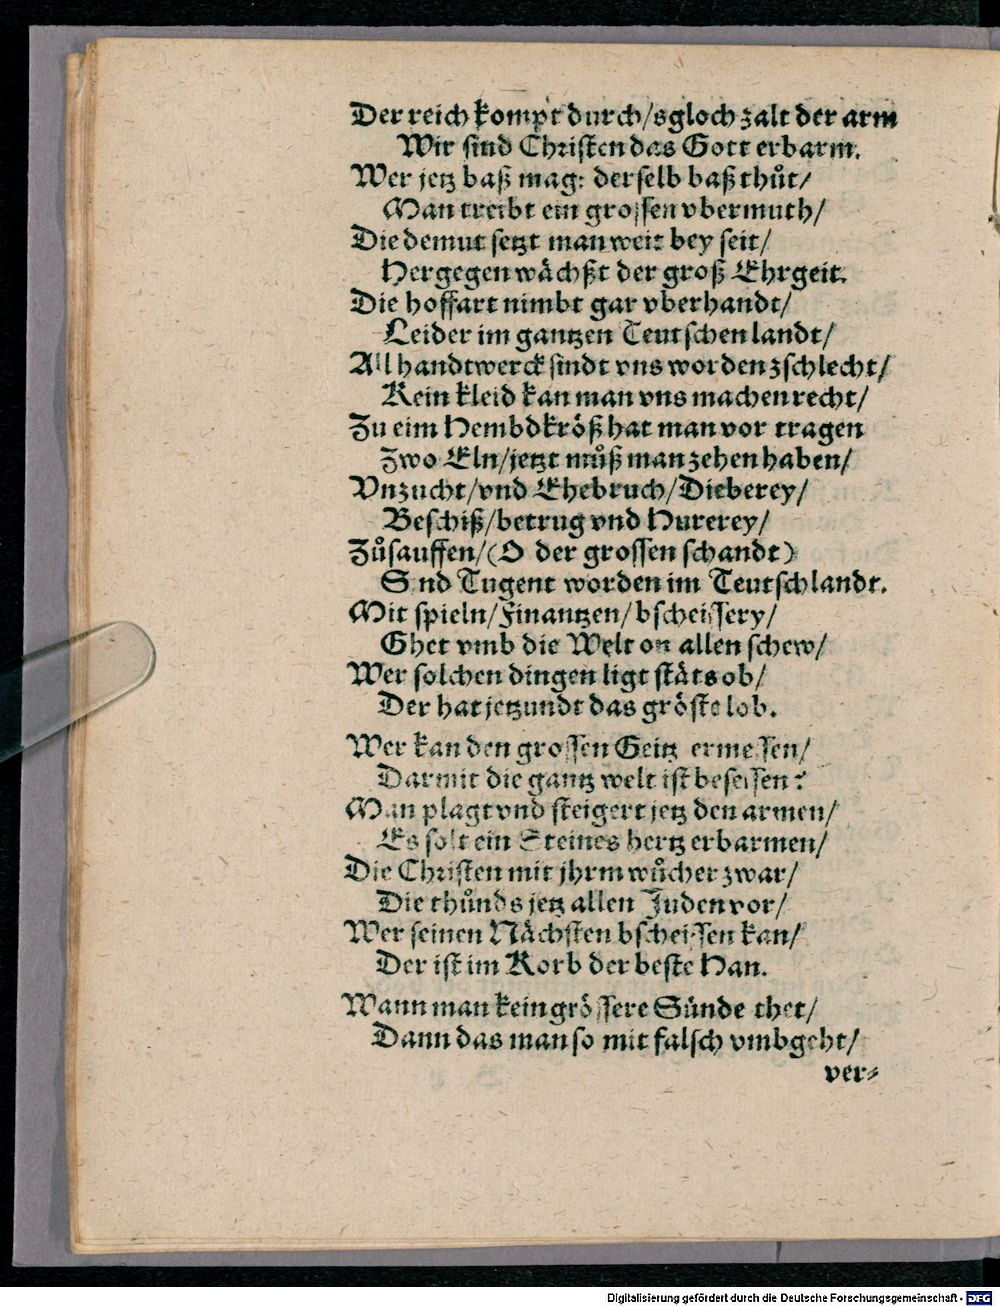 Der reich kompt durch/sgloch zalt der arm
Wir sind Christen das Gott erbarm.
Wer jetz baß mag: derselb baß thůt/
Man treibt ein grossen vbermuth/
Die demut setzt man weit bey seit/
Hergegen wächßt der groß Ehrgeit.
Die hoffart nimbt gar vberhandt/
Leider im gantzen Teutschen landt/
All handtwerck sindt vns worden zschlecht/
Kein kleid kan man vns machen recht/
Zu eim Hembdkröß hat man vor tragen
Zwo Eln/jetzt můß man zehen haben/
Vnzucht/vnd Ehebruch/Dieberey/
Beschiß/betrug vnd Hurerey/
Zůsauffen/(O der grossen schandt)
Sind Tugent worden im Teutschlandt.
Mit spieln/Finantzen/bscheissery/
Ghet vmb die Welt on allen schew/
Wer solchen dingen ligt stäts ob/
Der hat jetzundt das gröste lob.
Wer kan den grossen Geitz ermessen/
Darmit die gantz welt ist besessen?
Man plagt vnd steigert jetz den armen/
Es solt ein Steines hertz erbarmen/
Die Christen mit jhrm wůcher zwar/
Die thůnds jetz allen Juden vor/
Wer seinen Nächsten bscheissen kan/
Der ist im Korb der beste Han.
Wann man kein grössere Sünde thet/
Dann das man so mit falsch vmbgeht/
ver-
Digitalisierung gefördert durch die Deutsche Forschungsgemeinschaft - DFG